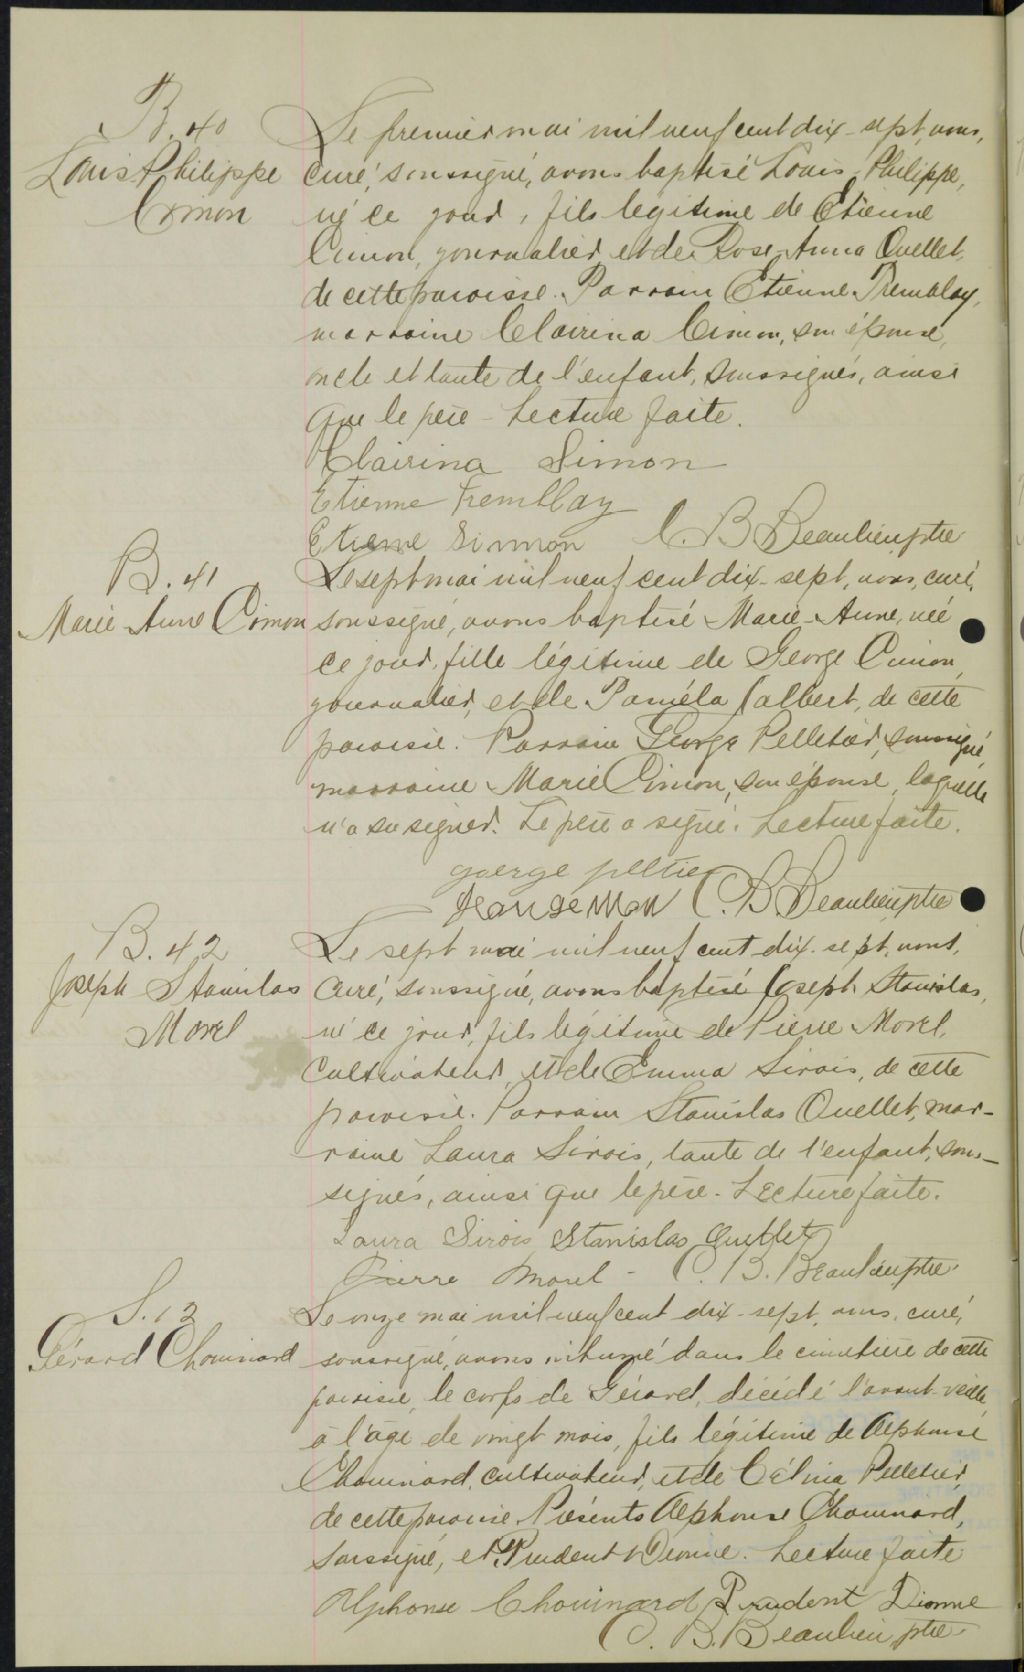 B. 40
Louis Philippe
Cimon
Le premier mai mil neuf cent dix-sept, nous,
curé, soussigné, avons baptisé Louis Philippe,
né ce jour, fils légitime de Etienne
Cimon, journalier, et de Rose-Anna Ouellet,
de cette paroisse. Parrain Etienne Tremblay,
marraine Clairina Cimon, son épouse,
oncle et tante de l'enfant, soussignés, ainsi
que le père - Lecture faite.
Clairina Simon
Etienne Tremblay
Etienne Simmon C. B. Beaulieu ptre
B. 41
Marie-Anne Cimon
Le sept mai mil neuf cent dix-sept, nous, curé,
soussigné, avons baptisé Marie-Anne, née
ce jour, fille légitime de George Cimon,
journalier, et de Paméla Jalbert, de cette
paroisse. Parrain George Pelletier, soussigné,
marraine Marie Cimon, son épouse, laquelle
n'a su signer. Le père a signé. Lecture faite.
goerge pelltier
C. B. Beaulieu ptre
B. 42
Joseph Stanislas
Morel
Le sept mai mil neuf cent dix-sept, nous,
curé, soussigné, avons baptisé Joseph Stanislas,
né ce jour, fils légitime de Pierre Morel,
cultivateur, et de Emma Sirois, de cette
paroisse. Parrain Stanislas Ouellet, mar-
raine Laura Sirois, tante de l'enfant, sous-
signés, ainsi que le père. Lecture faite.
Laura Sirois Stanislas Ouellet
Pierre Morel - C. B. Beaulieu ptre
S. 12
Gérard Chouinard
Le onze mai mil neuf cent dix-sept, nous, curé,
soussigné, avons inhumé dans le cimetière de cette
paroisse, le corps de Gérard, décédé l'avant-veille,
à l'âge de vingt mois, fils légitime de Alphonse
Chouinard, cultivateur, et de Célina Pelletier,
de cette paroisse. Présents Alphonse Chouinard,
soussigné, et Prudent Dionne. Lecture faite
Alphonse Chouinard Prudent Dionne
C. B. Beaulieu ptre